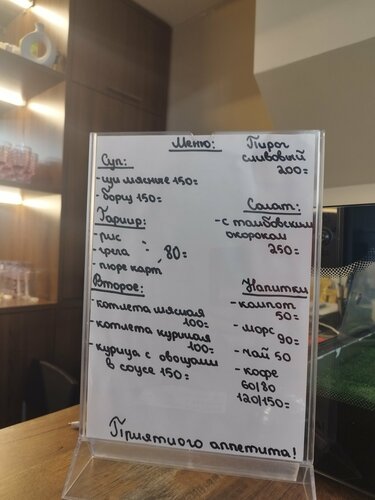 Меню:
Суп:
- щи мясные 150=
- борщ 150=
Гарнир:
- рис
- греча 80=
- пюре карт
Второе:
- котлета мясная
100=
- котлета куриная
100=
- курица с овощами
в соусе 150=
Пирог
сливовый
200=
Салат:
- с тамбовским
окороком
250=
Напитки
- компот
50=
- морс
90=
- чай 50
- кофе
60/80
120/150=
Приятного аппетита!